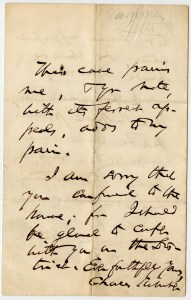 This case pains
me, & yr note,
with its fervent ap-
peals, adds to my
pain.
I am sorry that
you are confined to the
house; for I should
be glad to confer
with you on the Dis-
trict. Ever faithfully Yours,
Charles Sumner